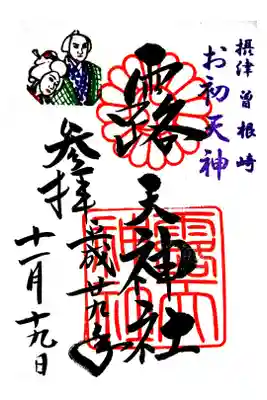 摂津 曽根崎
お初天神
露天神社
参拝
平成廿九年
十一月十九日